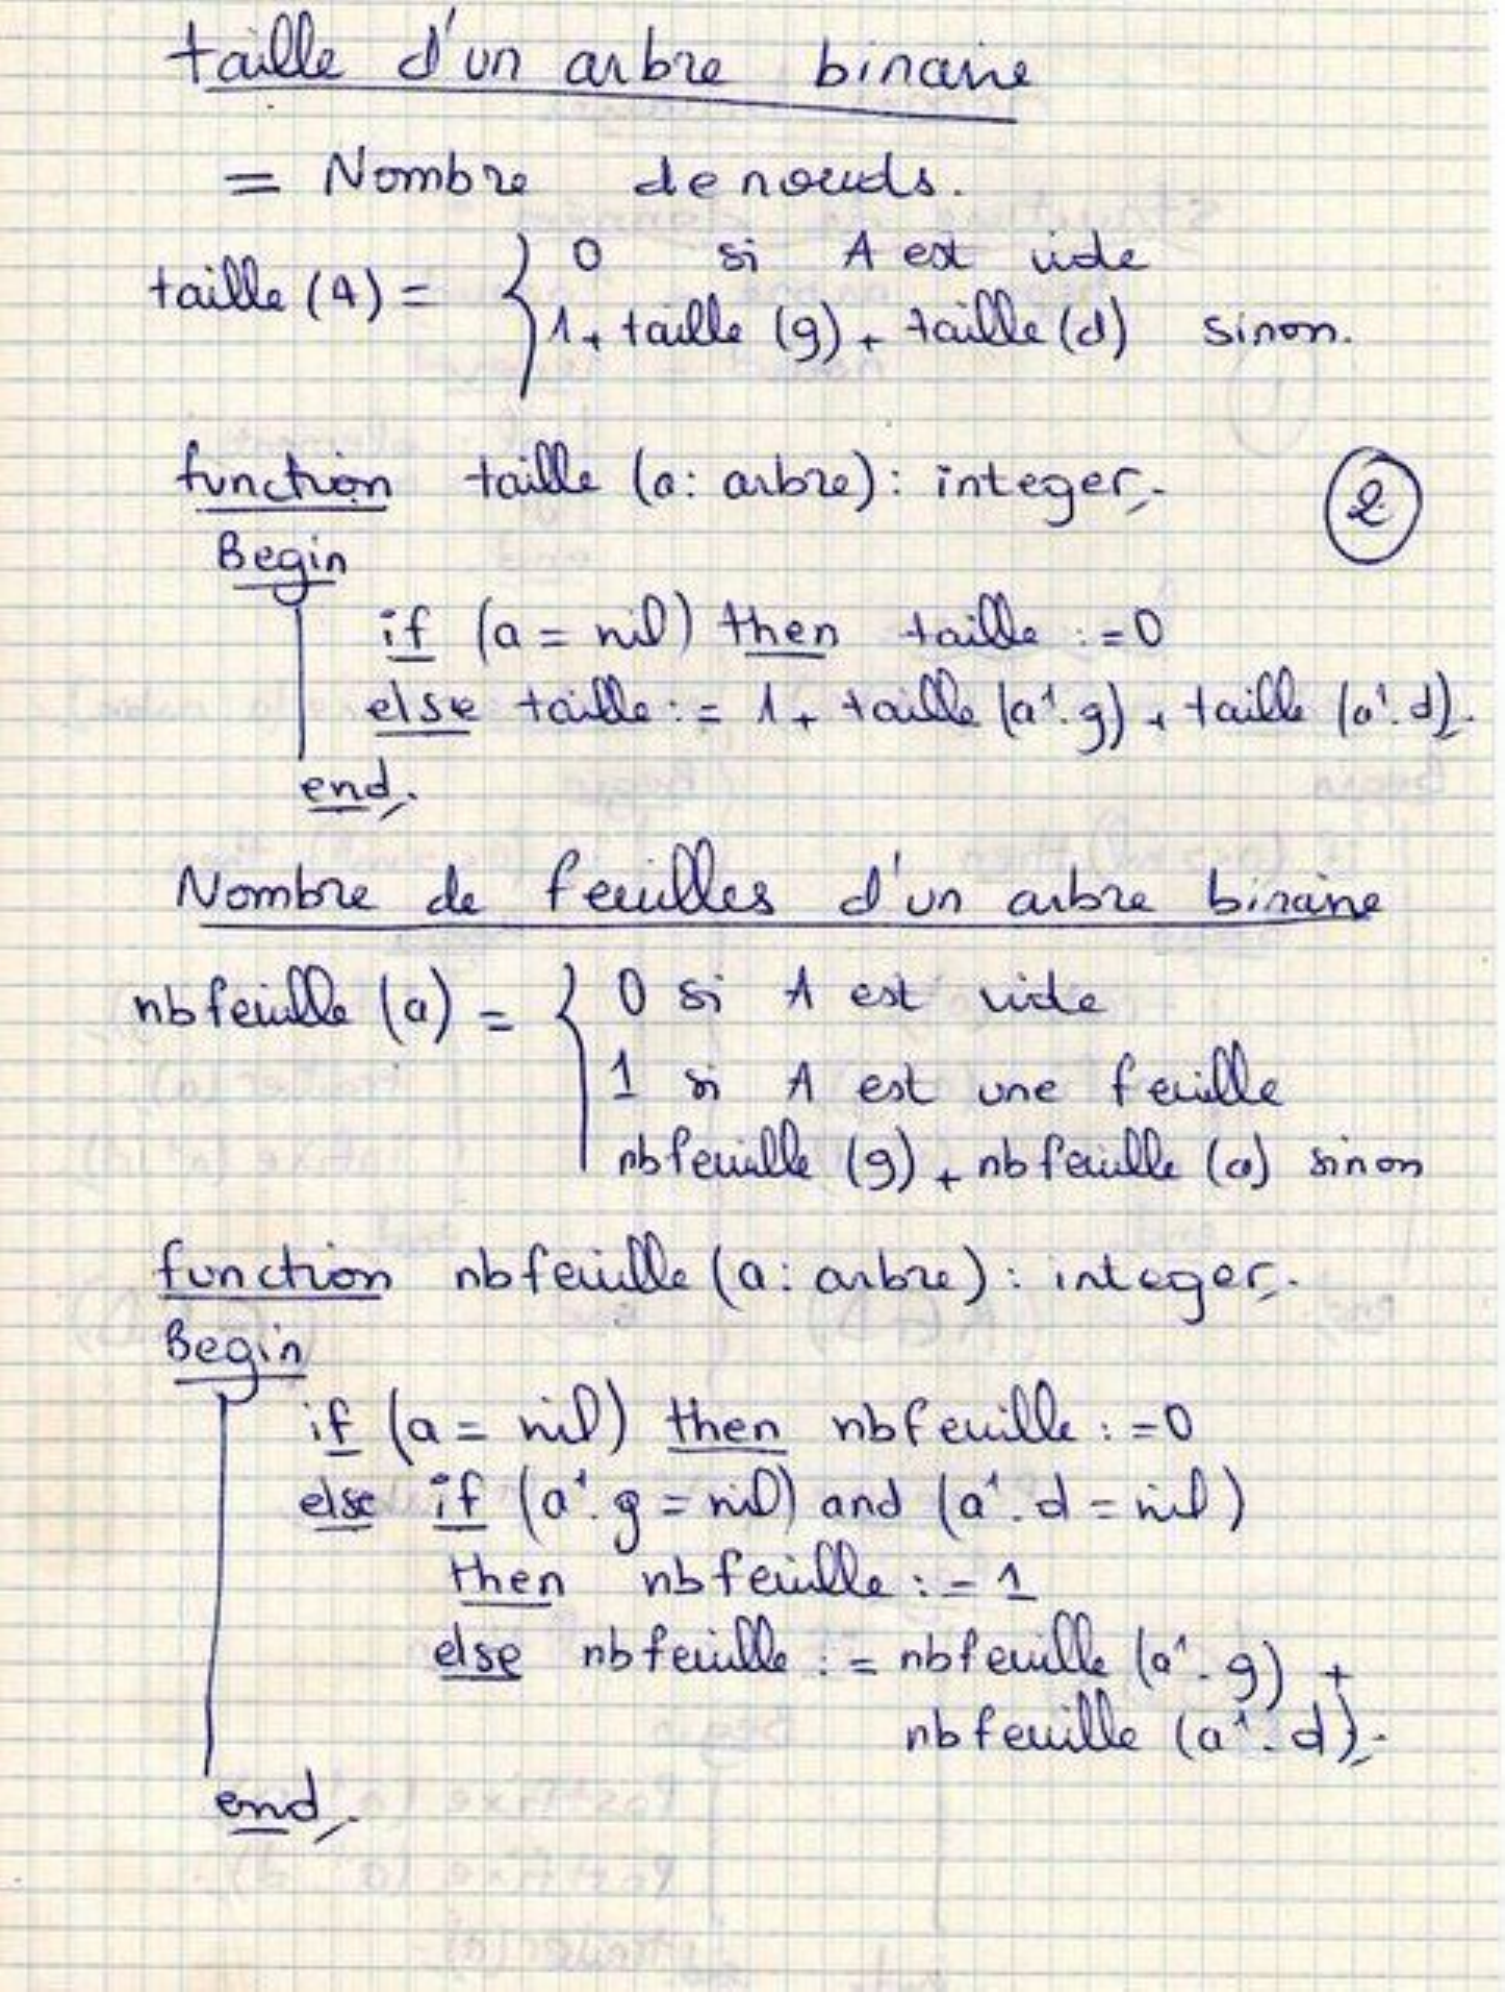 taille d'un arbre binaire
= Nombre de noeuds.
taille (A) = { 0 si A est vide
1 + taille (g) + taille (d) sinon.
function taille (a: arbre): integer;
②
Begin
if (a = nil) then taille := 0
else taille := 1 + taille (a↑.g) + taille (a↑.d);
end;
Nombre de feuilles d'un arbre binaire
nbfeuille (a) = { 0 si A est vide
1 si A est une feuille
nbfeuille (g) + nbfeuille (d) sinon
function nbfeuille (a: arbre): integer;
Begin
if (a = nil) then nbfeuille := 0
else if (a↑.g = nil) and (a↑.d = nil)
then nbfeuille := 1
else nbfeuille := nbfeuille (a↑.g) +
nbfeuille (a↑.d);
end;